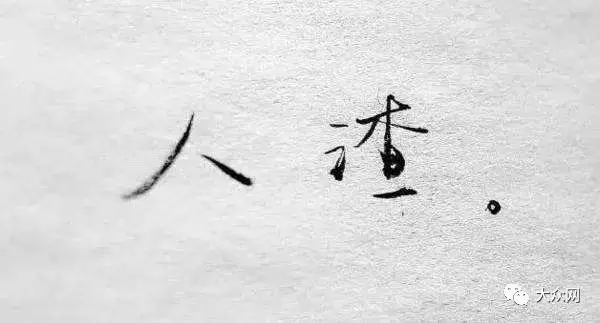 人渣。
大众网